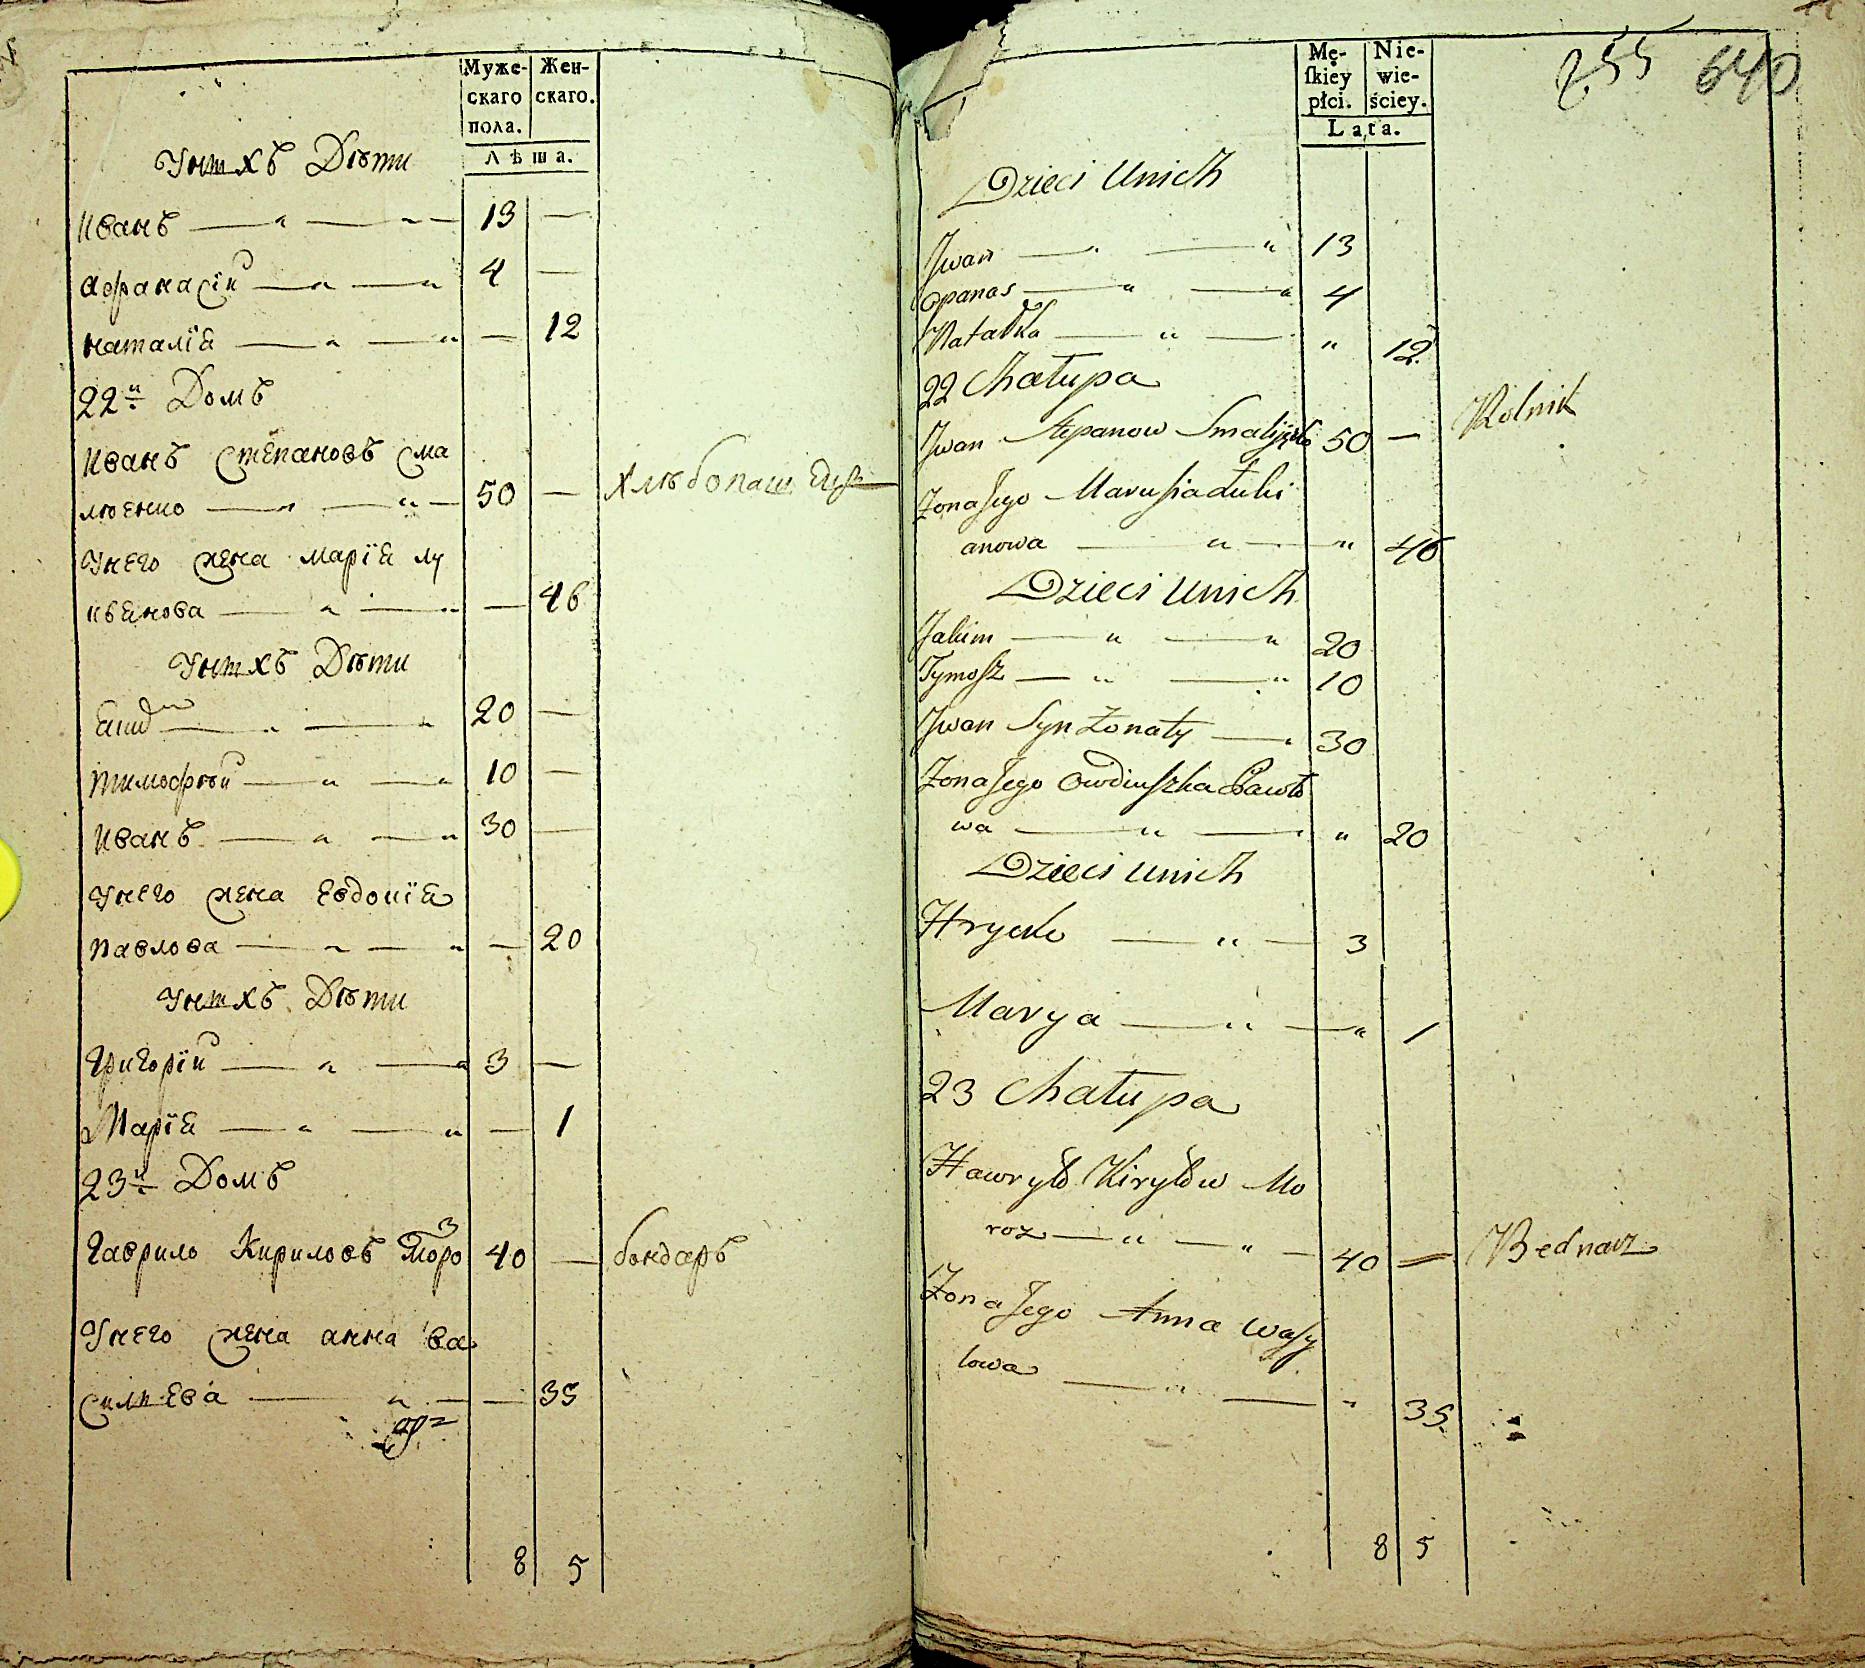 Муже-
скаго
пола.
Жен-
скаго.
Лѣта.
У нихъ Дѣти
Иванъ 13 —
Афанасiй 4 —
Наталiя — 12
22й Домъ
Иванъ Степановъ Сма
люенко 50 — хлѣбопашецъ
У него жена Марiя Лу
кьянова — 46
У нихъ Дѣти
Еким 20 —
Тимофѣй 10 —
Иванъ 30 —
У него жена Евдокiя
Павлова — 20
У нихъ Дѣти
Григорiй 3 —
Марiя — 1
23й Домъ
Гаврило Кириловъ Мороз 40 — бондаръ
У него жена Анна Ва
силиева — 35
8 5
Mę-
skiey
płci.
Nie-
wie-
ściey.
Lata.
255 640
Dzieci Unich
Jwan 13
Opanas 4
Natałka " 12
22 Chałupa
Jwan Stepanow 50 — Rolnik
Zona Jego Marusia Łuki
anowa " 46
Dzieci Unich
Jakim 20
Tymosz 10
Jwan Syn Zonaty 30
Zona Jego Owdiuszka Pawło
wa " 20
Dzieci Unich
Hrycko 3
Marya " 1
23 Chałupa
Hawryło Kiryłow Mo
roz 40 — Bednarz
Zona Jego Anna Wasy
lowa " 35
8 5